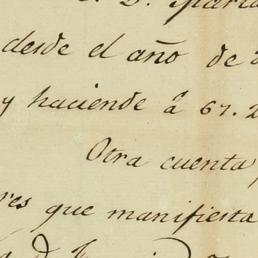 desde el año de
y haciende à 67.2
Otra cuenta
res que manifiesta